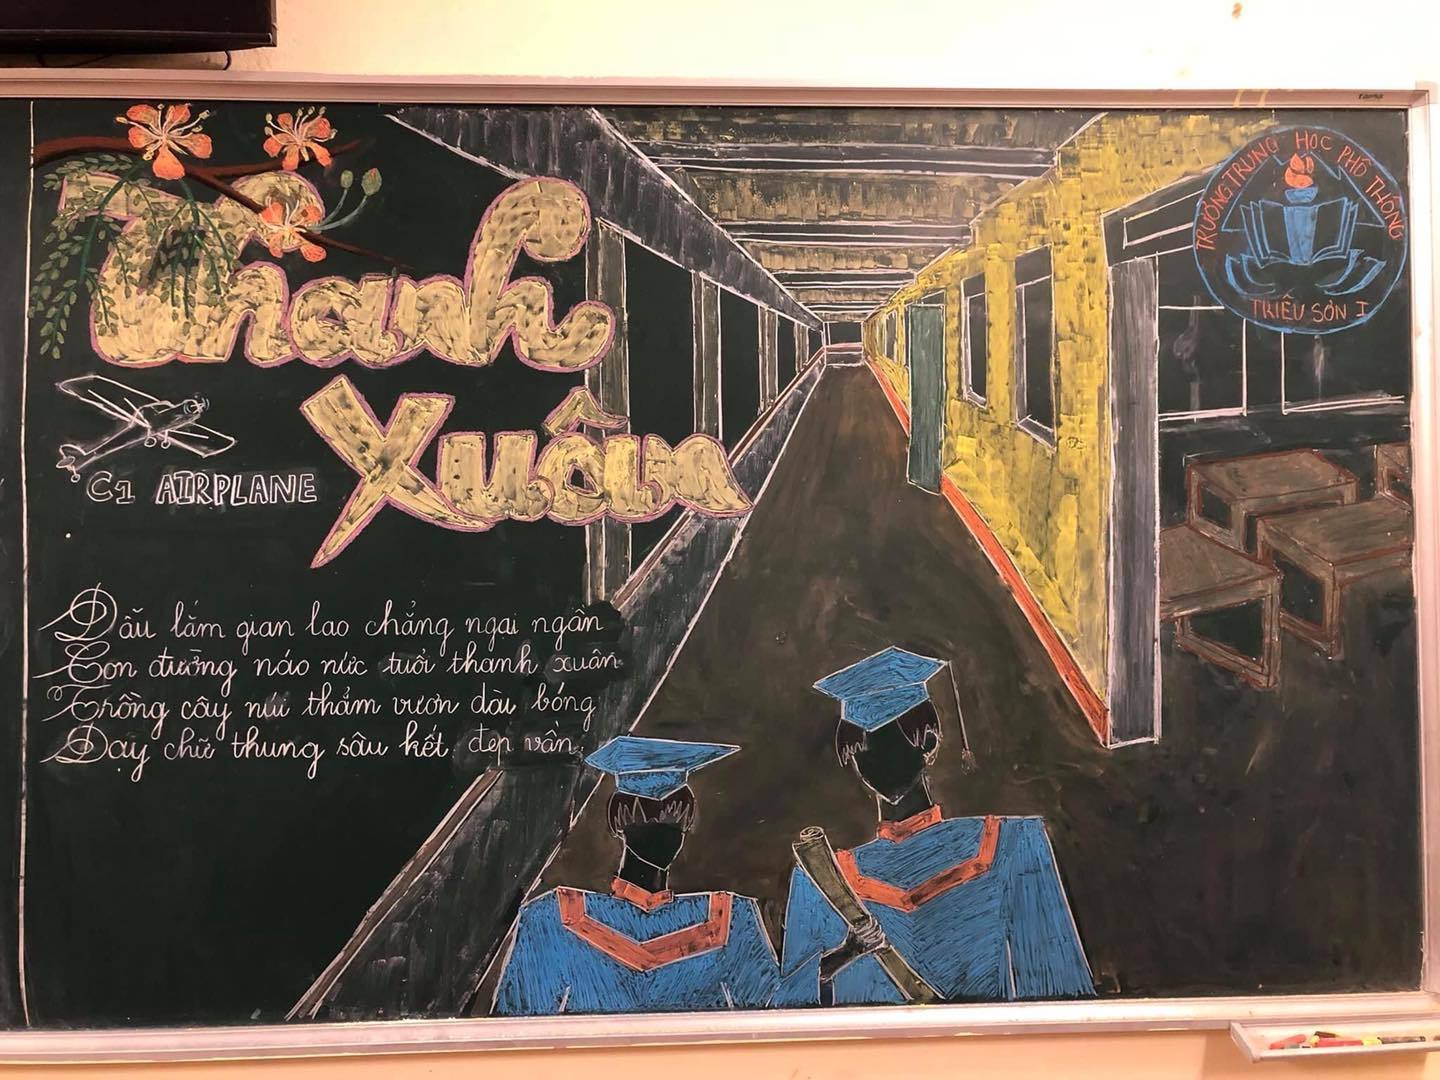 Thanh
Xuân
TRƯỜNG TRUNG HỌC PHỔ THÔNG
TRIỆU SƠN I
C1 AIRPLANE
Dẫu lắm gian lao chẳng ngại ngần
Con đường náo nức tuổi thanh xuân
Trồng cây núi thẳm vươn dài bóng
Dạy chữ thung sâu kết đẹp vần